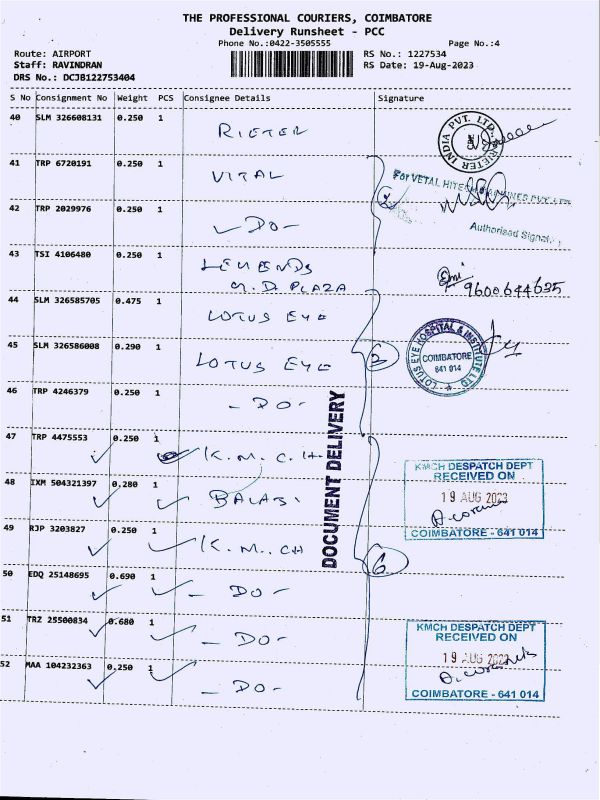 THE PROFESSIONAL COURIERS, COIMBATORE
Delivery Runsheet - PCC
Phone No.:0422-3505555
Page No.:4
Route: AIRPORT
RS No.: 1227534
Staff: RAVINDRAN
RS Date: 19-Aug-2023
DRS No.: DCJB122753404
S No Consignment No Weight PCS Consignee Details Signature
40 SLM 326608131 0.250 1 RIETER
RIETER INDIA PVT. LTD.
41 TRP 6720191 0.250 1 VITAL
For VETAL HITECH MACHINES PVT LTD
2
42 TRP 2029976 0.250 1 - DO -
Authorised Signat.
43 TSI 4106480 0.250 1 LEGENDS
G.D. PLAZA
9600644635
44 SLM 326585705 0.475 1 LOTUS EYE
45 SLM 326586008 0.290 1 LOTUS EYE
3
LOTUS EYE HOSPITAL & INSTITUTE LTD
COIMBATORE
641 014
46 TRP 4246379 0.250 1 - DO -
DOCUMENT DELIVERY
47 TRP 4475553 0.250 1 K.M.C.H
KMCH DESPATCH DEPT
RECEIVED ON
19 AUG 2023
COIMBATORE - 641 014
48 IXM 504321397 0.280 1 BALAJI
49 RJP 3203827 0.250 1 K.M.CH
6
50 EDQ 25148695 0.690 1 - DO -
51 TRZ 25500834 0.680 1 - DO -
KMCH DESPATCH DEPT
RECEIVED ON
19 AUG 2023
COIMBATORE - 641 014
52 MAA 104232363 0.250 1 - DO -